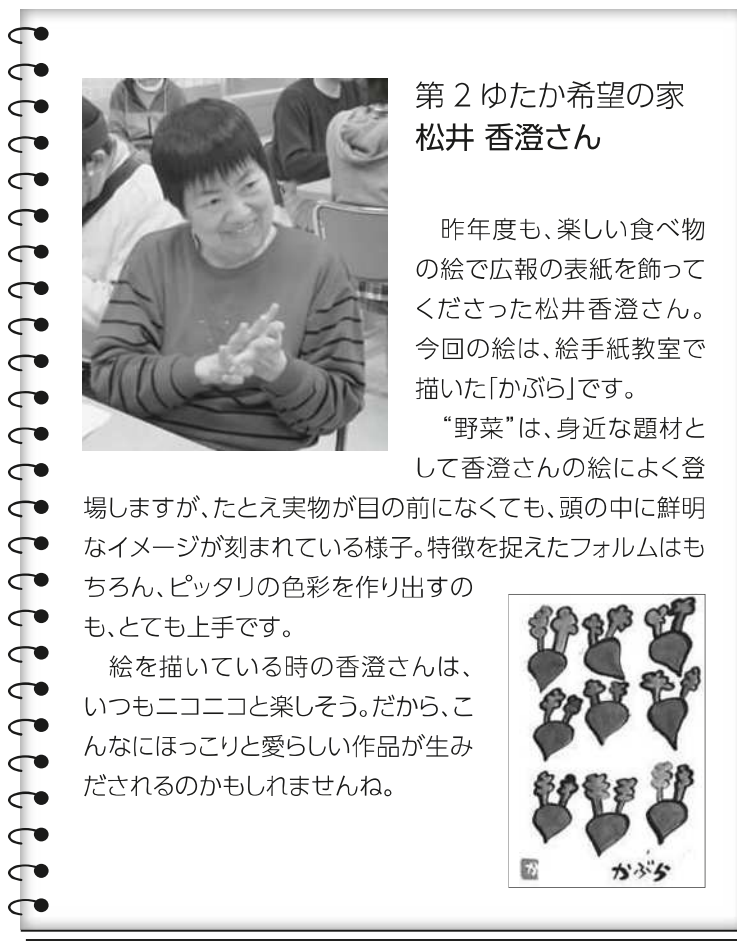 第2ゆたか希望の家
松井 香澄さん
　昨年度も、楽しい食べ物
の絵で広報の表紙を飾って
くださった松井香澄さん。
今回の絵は、絵手紙教室で
描いた「かぶら」です。
　“野菜”は、身近な題材と
して香澄さんの絵によく登
場しますが、たとえ実物が目の前になくても、頭の中に鮮明
なイメージが刻まれている様子。特徴を捉えたフォルムはも
ちろん、ピッタリの色彩を作り出すの
も、とても上手です。
　絵を描いている時の香澄さんは、
いつもニコニコと楽しそう。だから、こ
んなにほっこりと愛らしい作品が生み
だされるのかもしれませんね。
か
かぶら